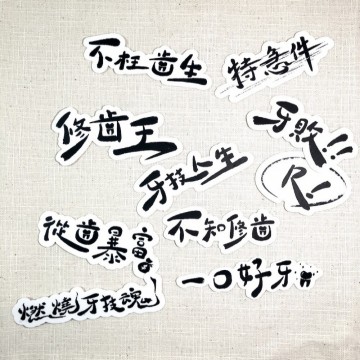 不枉齒生
特急件
修齒王
牙敗!!
牙技人生
R!!
從齒暴富
不知修齒
一口好牙
燃燒牙技魂